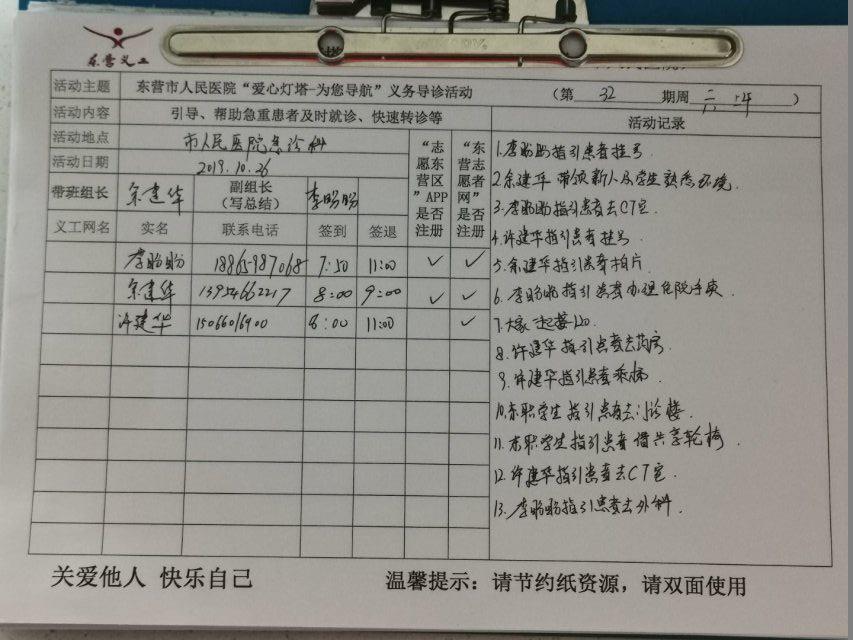 东营义工
活动主题 东营市人民医院“爱心灯塔-为您导航”义务导诊活动 （第 32 期周 六 ）
活动内容 引导、帮助急重患者及时就诊、快速转诊等 活动记录
活动地点 市人民医院急诊科
活动日期 2019.10.26
带班组长 余建华 副组长（写总结） 李盼盼
“志愿东营区”APP是否注册
“东营志愿者网”是否注册
义工网名 实名 联系电话 签到 签退
李盼盼 18865987068 7:50 11:00 ✓ ✓
余建华 13954662217 8:00 9:00 ✓ ✓
许建华 15066016900 8:00 11:00 ✓
1.李盼盼指引患者挂号.
2.余建华 带领新人及学生熟悉环境.
3.李盼盼指引患者去CT室.
4.许建华指引患者挂号
5.余建华指引患者拍片
6.李盼盼指引患者办理住院手续.
7.大家一起
8.许建华指引患者去药房.
9.许建华指引患者乘梯.
10.东职学生指引患者去门诊楼.
11.东职学生指引患者借共享轮椅.
12.许建华指引患者去CT室.
13.李盼盼指引患者去外科.
关爱他人 快乐自己 温馨提示：请节约纸资源，请双面使用